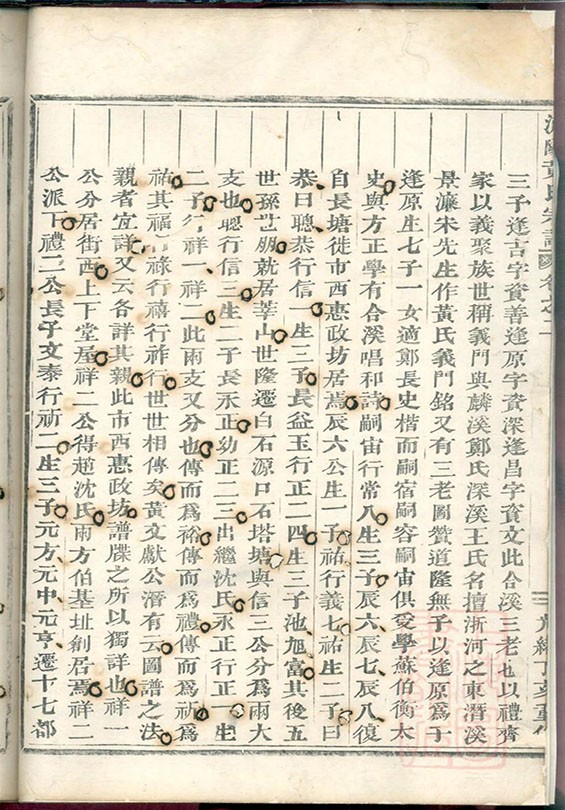 三子逢吉字資善逢原字資深逢昌字資文此合溪三老也以禮齊
家以義聚族世稱義門與麟溪鄭氏深溪王氏名擅浙河之東潛溪
景濂宋先生作黃氏義門銘又有三老圖贊道隆無子以逢原爲子
逢原生七子一女適鄭長史楷而嗣宿嗣容嗣宙俱受學蘇伯衡太
史與方正學有合溪唱和詩嗣宙行常八生三子辰六辰七辰八復
自長塘徙市西惠政坊居焉辰六公生一子祐行義七祐生二子曰
恭曰聰恭行信一生三子長益玉行正二四生三子池旭富其後五
世孫世朋就居莘山世隆遷白石源口石塔塘與信三公分爲兩大
支也聰行信三生二子長永正幼正二三出繼沈氏永正行正一生
二子行祥一祥二此兩支又分也傳而爲裕傳而爲禮傳而爲祈爲
祐其福祿行禧行祚行世世相傳矣黃文獻公潛有云圖譜之法
親者宜詳又云各詳其親此市西惠政坊譜牒之所以獨詳也祥一
公分居街西上下堂屋祥二公得趙沈氏兩方伯基址創居焉祥二
公派下禮二公長子文泰行祈二生三子元方元中元亨遷十七都
氏宗譜 卷之一
光緒丁亥重修